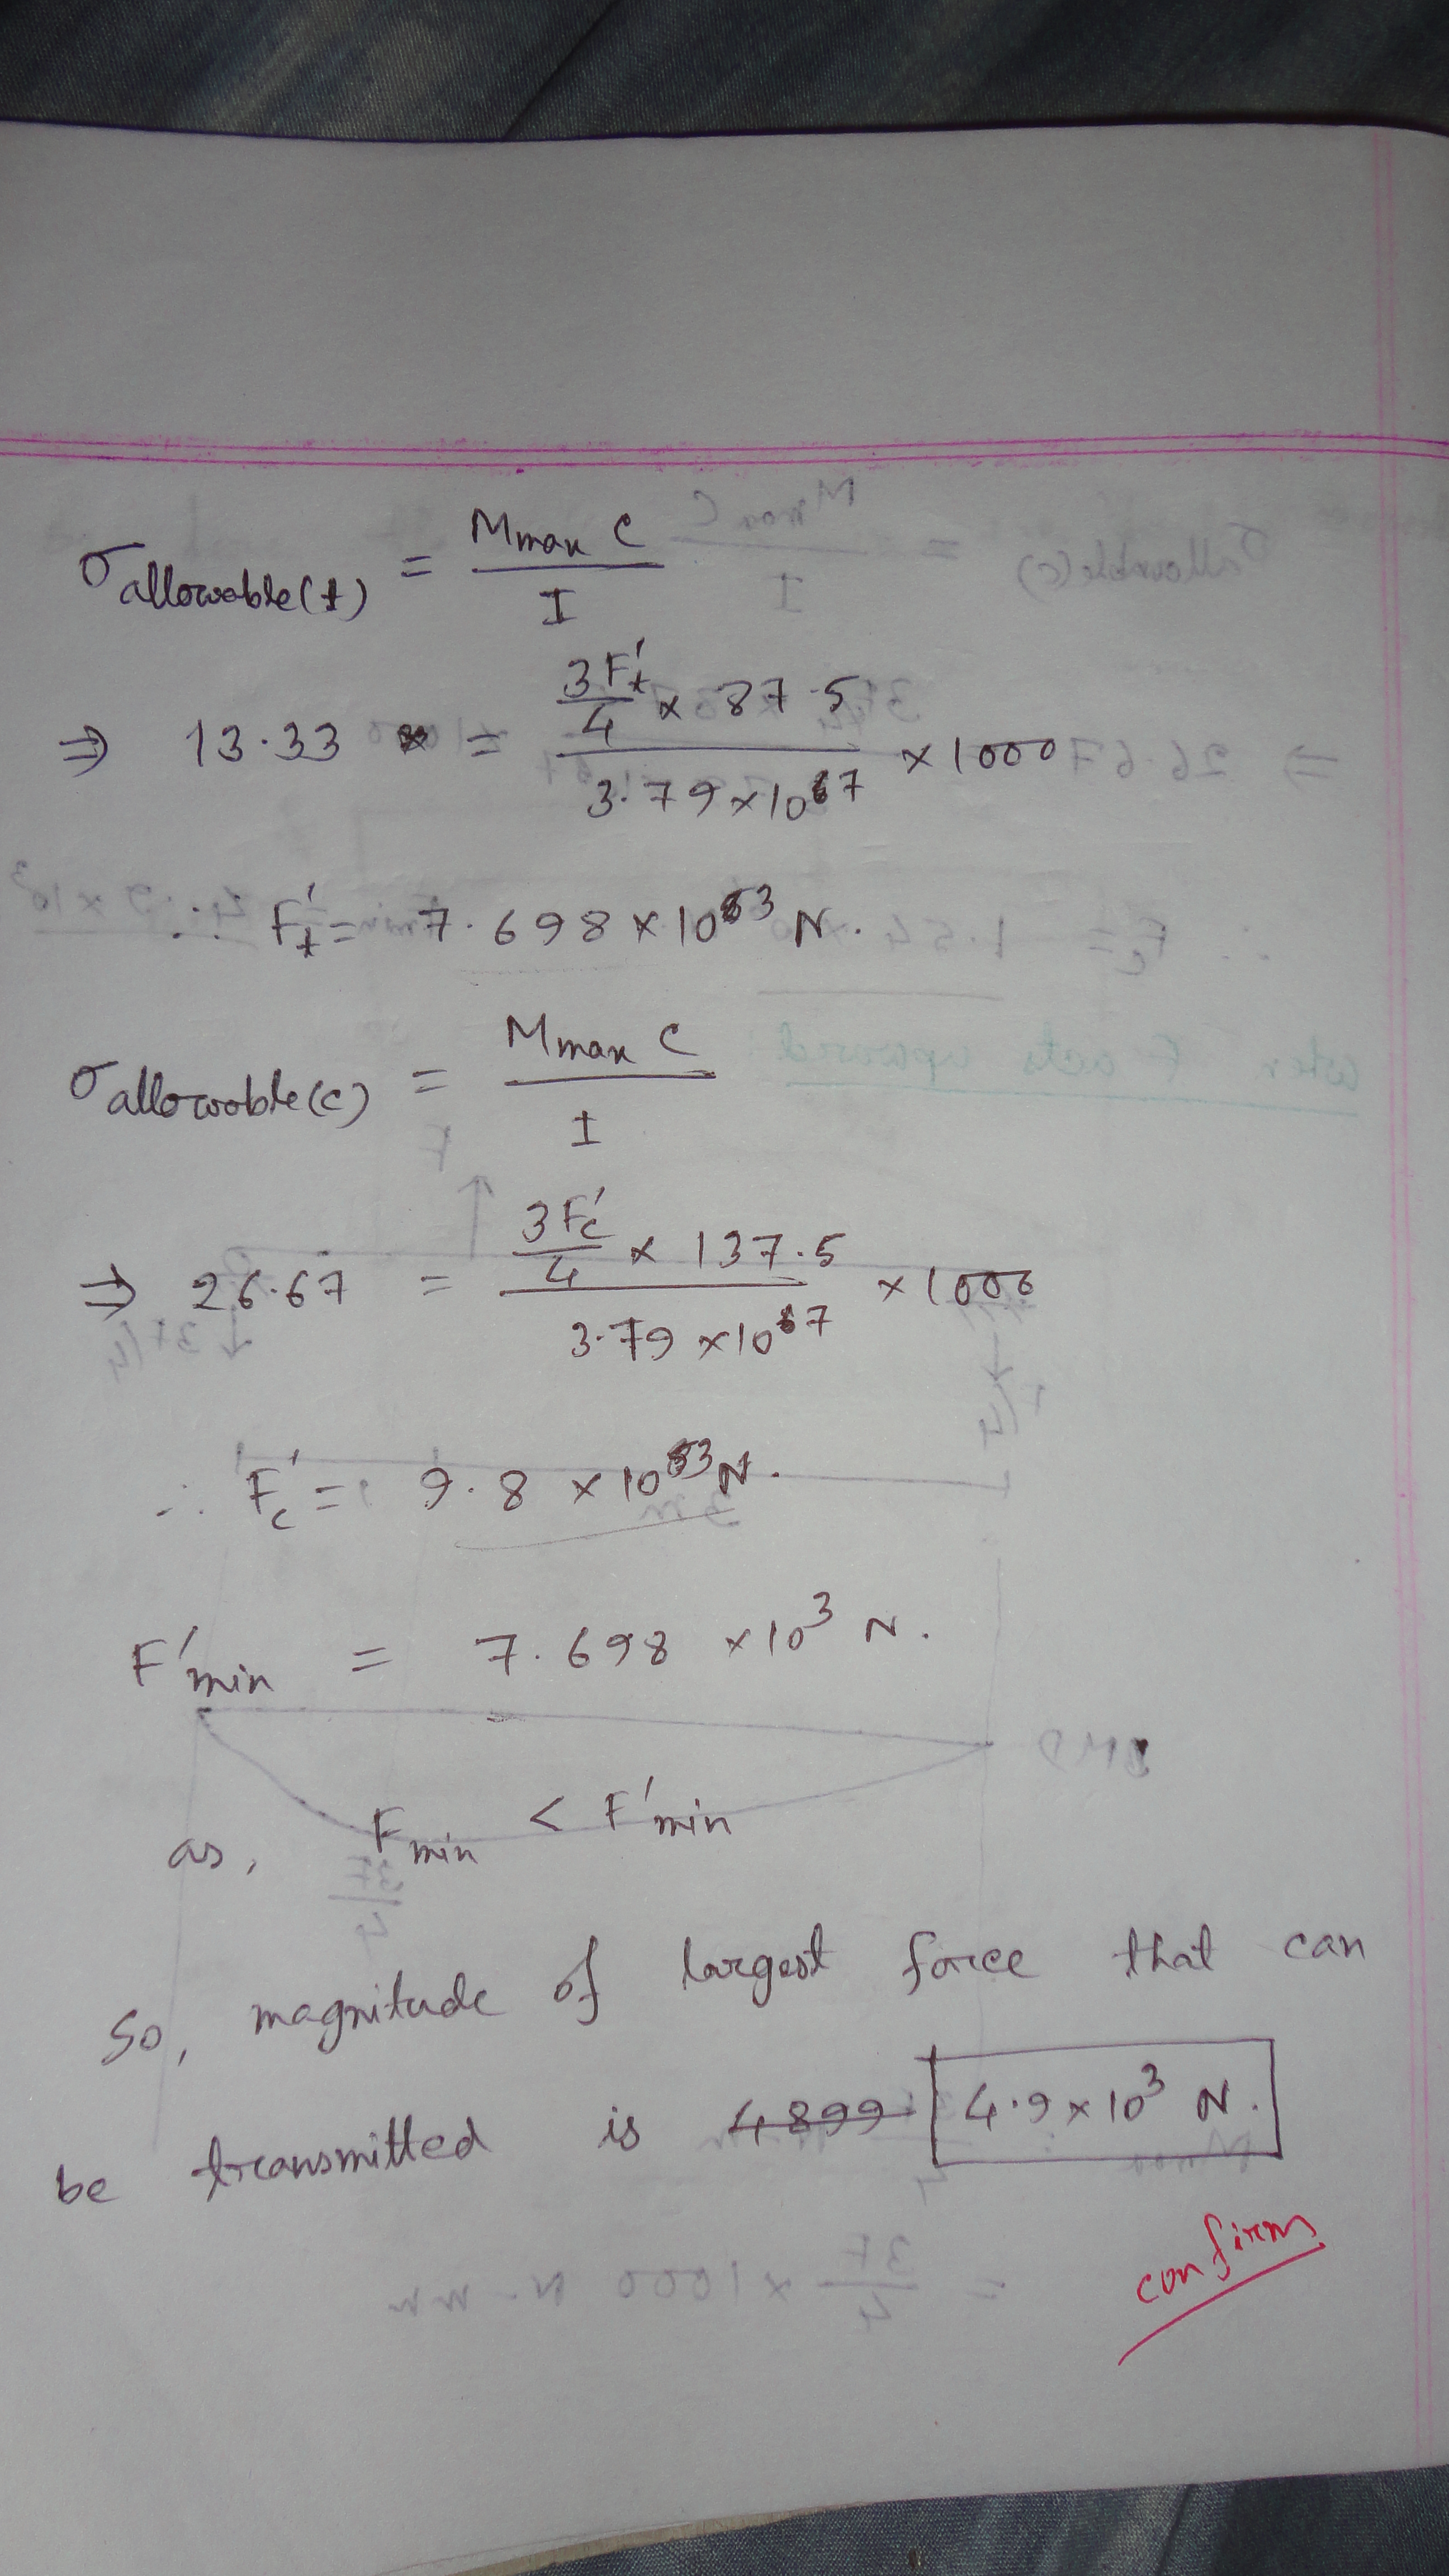 σallowable(t) = Mmax C / I
⇒ 13.33 = (3F't/4 × 87.5) / (3.79×10^7) × 1000
∴ F't = 7.698 × 10^3 N.
σallowable(c) = Mmax C / I
⇒ 26.67 = (3F'c/4 × 137.5) / (3.79×10^7) × 1000
∴ F'c = 9.8 × 10^3 N.
F'min = 7.698 ×10^3 N.
as, Fmin < F'min
So, magnitude of largest force that can
be transmitted is 4899 4.9×10^3 N.
confirm